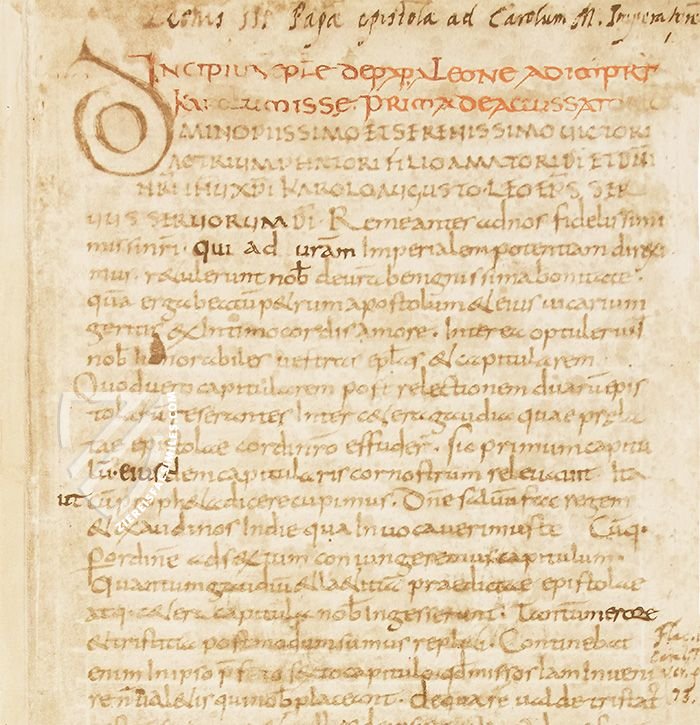 Leonis III Papæ epistola ad Carolum M. Imperatore
INCIPIUNT EPLE DE PAPA LEONE AD IMPRT
KAROLUM ISSE. PRIMA DE ACUSSATO
DOMINO PIISSIMO ET SERENISSIMO UICTORI
AC TRIUMPHATORI FILIO AMATORI DI ET DNI
NRI IHU XPI KAROLO AUGUSTO. LEO EPS SER
UUS SERUORUM DI. Remeantes ad nos fidelissimi
missi nri. qui ad uram Imperialem potentiam direxi
mus. retulerunt nob de ura benignissima bonitate.
qua erga beatu petrum apostolum & eius uicarium
geritis & Intimo cordis amore. Interea optulerunt
nob honorabiles uestras eplas & capitularem
Quod uero capitularem post relectionem duaru epis
tolaru reserantes Inter cetera gaudia quae prela
tae epistolae cordi nro effuder. Sic primum capitu
lu. eiusdem capitularis cor nostrum releuauit. Ita
ut cu propheta dicere cupimus. Dne saluu fac regem
& exaudi nos In die qua Inuocauerimus te Cuq.
p ordine ad sextum coniungeremur capitulum.
Quantum gaudiu & laetitia praedictae epistolae
atq. cetera capitula nob Ingesserunt. Tantum merore
& tristitia postmodum sumus repleti. Continebat
enim In ipso pfato sexto capitulo qd missos Iam Inueni
re n ualetis qui nob placeant. de qua re ualde tristat